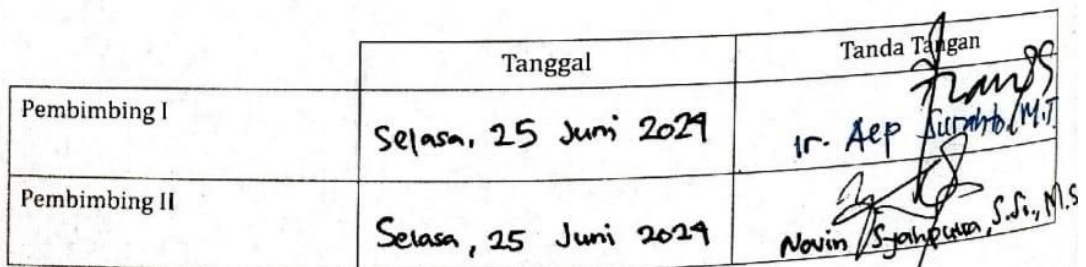 Tanggal
Tanda Tangan
Pembimbing I
Selasa, 25 Juni 2024
Ir. Aep M.T
Pembimbing II
Selasa, 25 Juni 2024
Novin S.Si., M.S